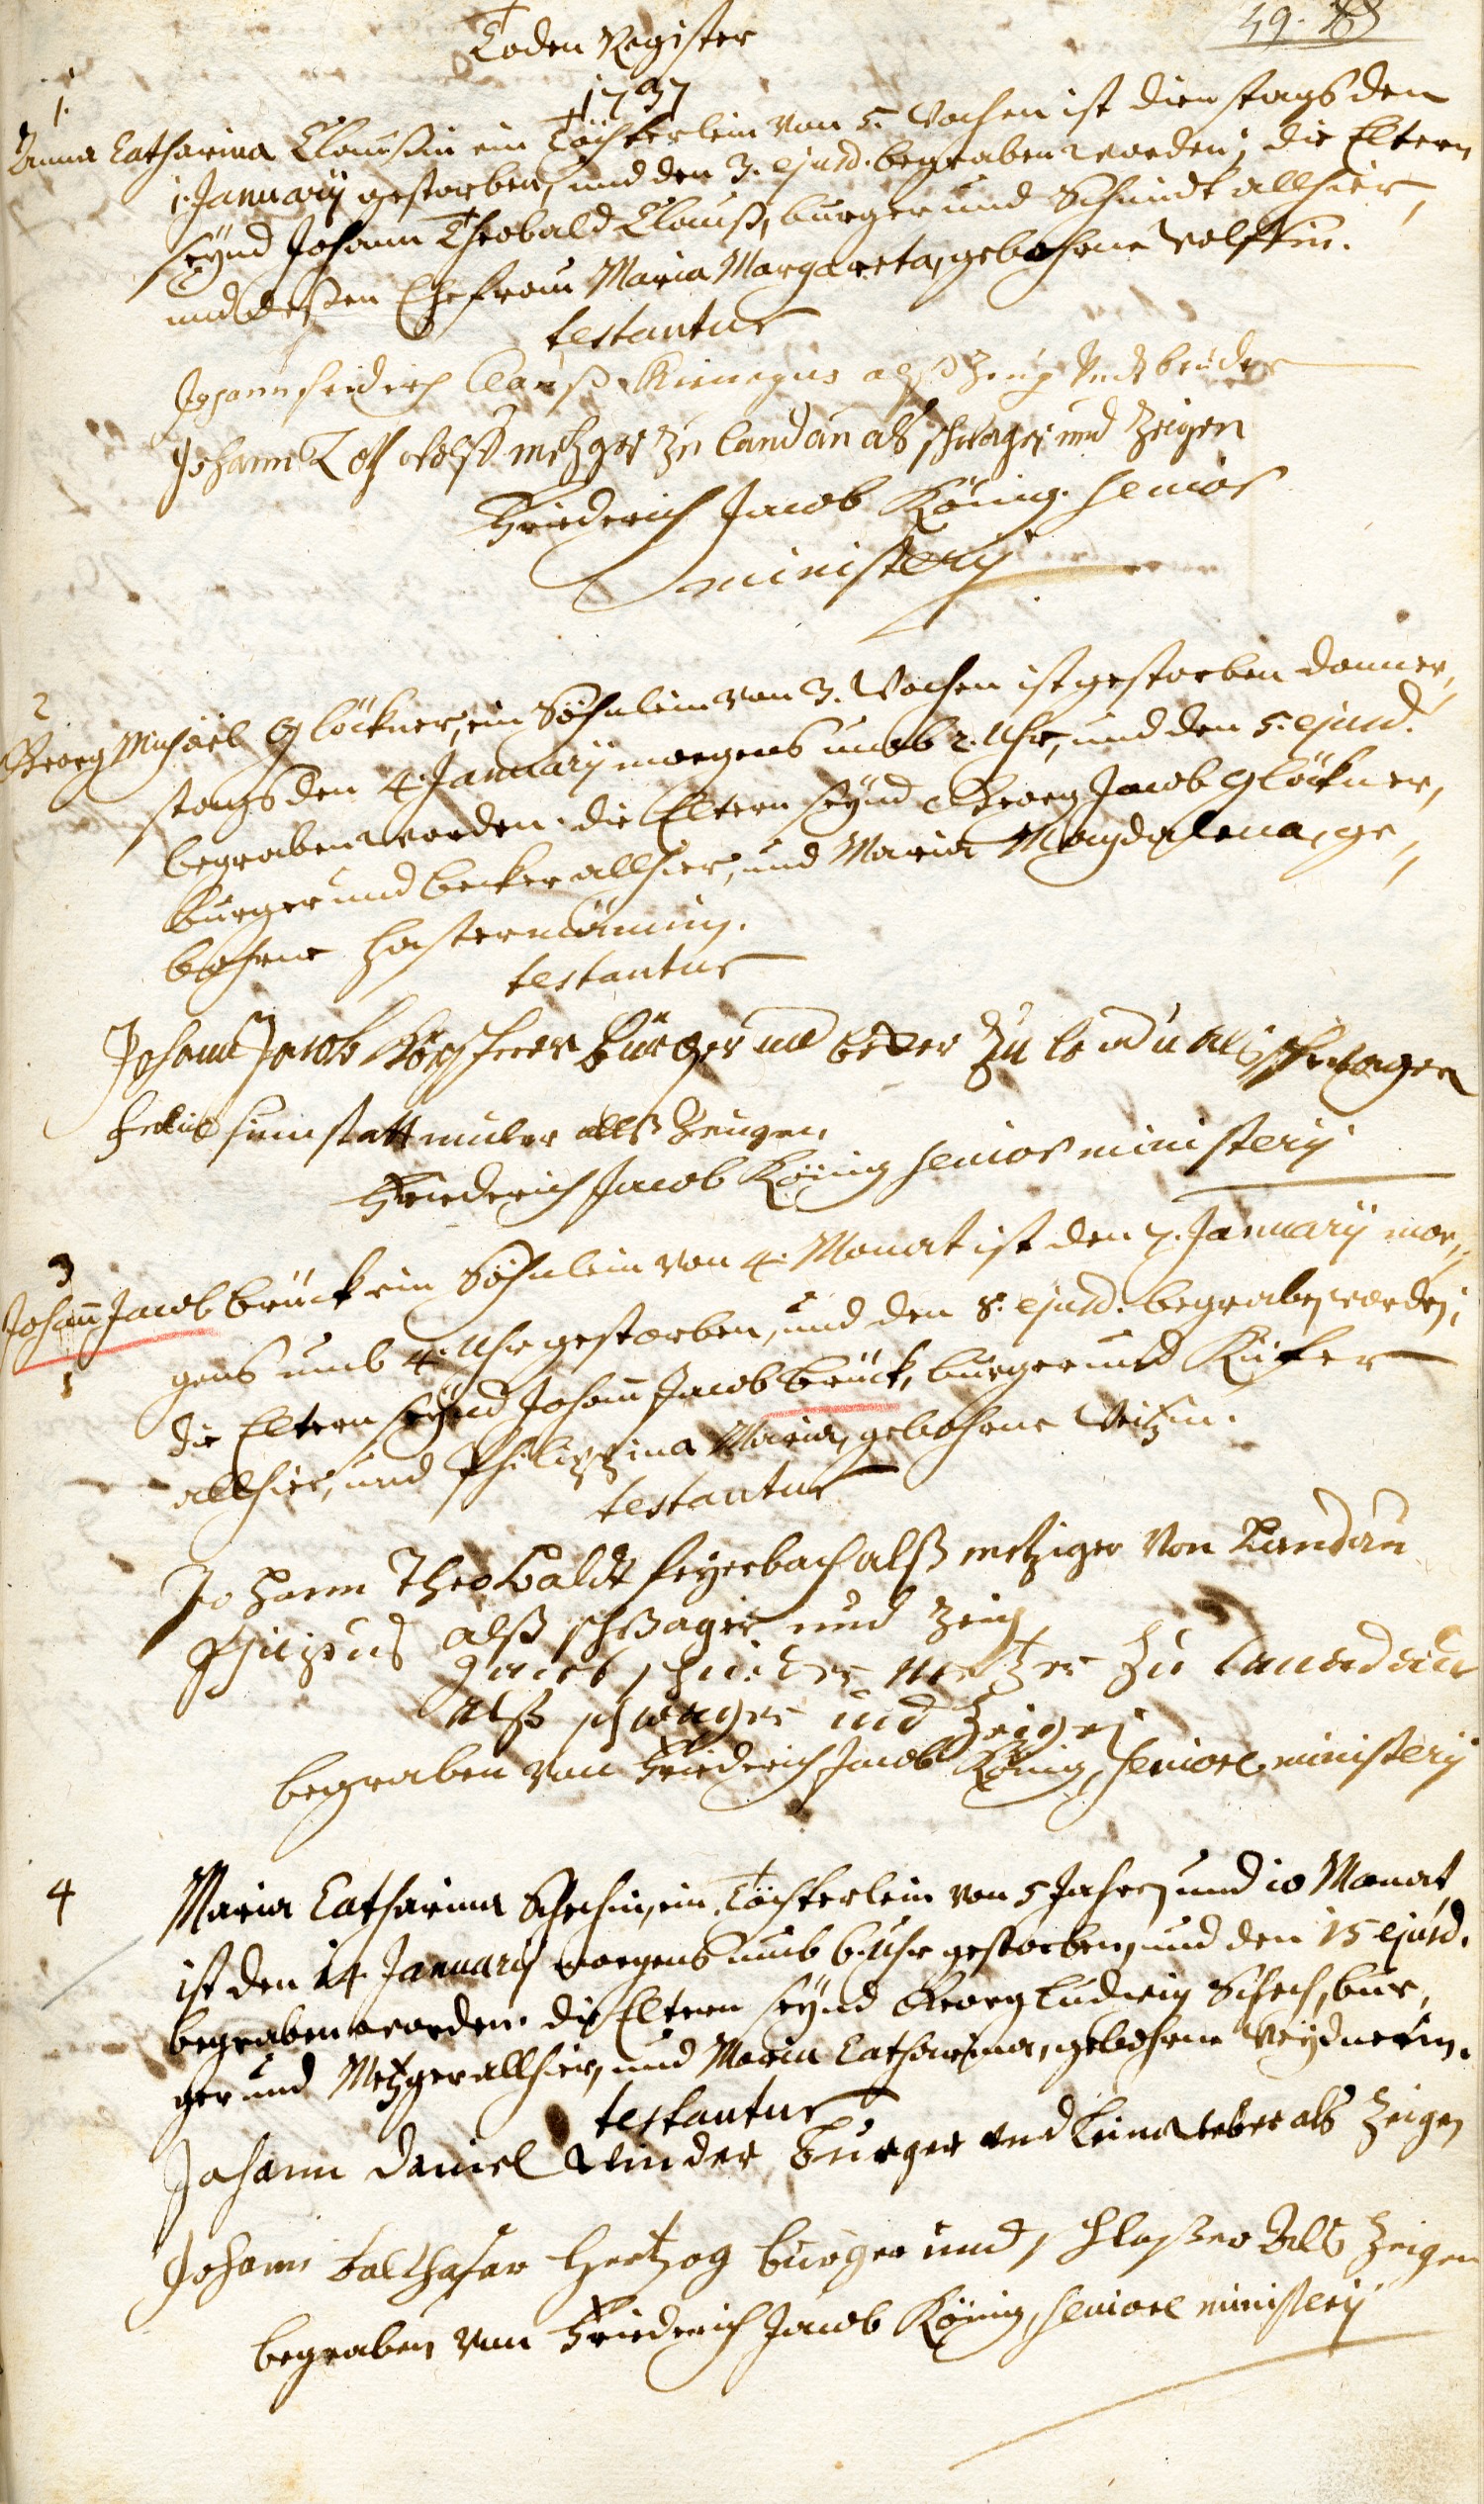 Toden Register
49.
1737
1.
Anna Catharina Claußin ein Töchterlein von 5. Wochen ist dienstags den
1. January gestorben, und den 3. ejusd. begraben worden; die Eltern
seynd Johann Theobald Clauß, burger und Schmidt allhier,
und deßen Ehefrau Maria Margareta, gebohrne Wolffin.
testantur
Johann Clauß alß Zeug bruder
Johann metzger zu landau als schwager und Zeigen
Friederich Jacob König. senior
ministerij
2
Georg Michaël Glöckner, ein Söhnlein von 3. Wochen ist gestorben donner,,
stags den 4. January morgens umb 2. Uhr, und den 5. ejusd.
begraben worden. die Eltern seynd Georg Jacob Glöckner,
burger und becker allhier, und Maria Magdalena, ge,,
bohrne
testantur
Johann Jacob Bürger und becker zu als schwager
müler alß Zeugen
Friederich Jacob König senior ministerij
3
Johann Jacob brück ein Söhnlein von 4. Monat ist den 7. January mor,,
gens umb 4. Uhr gestorben, und den 8. ejusd. begraben worden;
die Eltern seynd Johann Jacob brück, burger und Küfer
allhier, und Philippina Maria, gebohrne Veitzin.
testantur
Johann Theobaldt feyerbach alß metziger Von Landau
alß schwager und Zeig
Jacob metzger zu
alß schwager und Zeigen
begraben von Friederich Jacob König, seniore ministerij
4
Maria Catharina Schechin, ein Töchterlein von 5 Jahren und 10 Monat
ist den 14. January morgens umb 6. Uhr gestorben, und den 15 ejusd.
begraben worden. die Eltern seynd Georg Ludwig Schech, bur,,
ger und Metzger allhier, und Maria Catharina, gebohrne Weydnerin.
testantur
Johann Daniel Burger und Leinweber als Zeigen
Johann Balthasar Hertzog burger und schloßer Als Zeigen
begraben von Friederich Jacob König, seniore ministerij